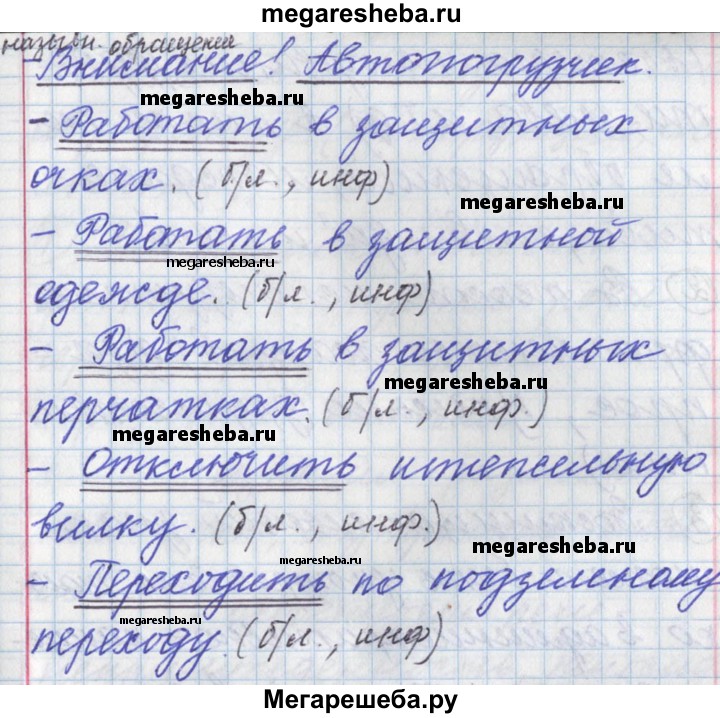 megaresheba.ru
назывн. обращения
- Внимание! Автопогрузчик.
megaresheba.ru
- Работать в защитных
очках. (б/л., инф)
megaresheba.ru
- Работать в защитной
megaresheba.ru
одежде. (б/л., инф)
- Работать в защитных
megaresheba.ru
перчатках. (б/л., инф.)
megaresheba.ru
- Отключить штепсельную
вилку. (б/л., инф.)
megaresheba.ru
megaresheba.ru
- Переходить по подземному
megaresheba.ru
переходу. (б/л., инф)
Мегарешеба.ру